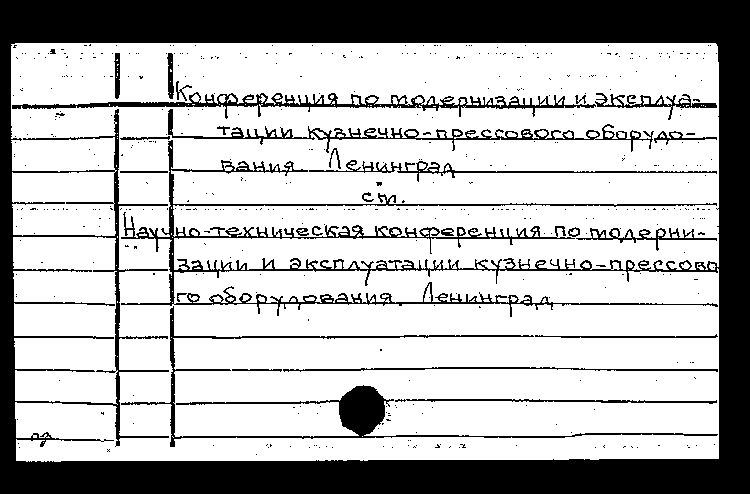 Конференция по модернизации и эксплуа-
тации кузнечно-прессового оборудо-
вания. Ленинград
см.
Научно-техническая конференция по модерни-
зации и эксплуатации кузнечно-прессово
го оборудования. Ленинград.